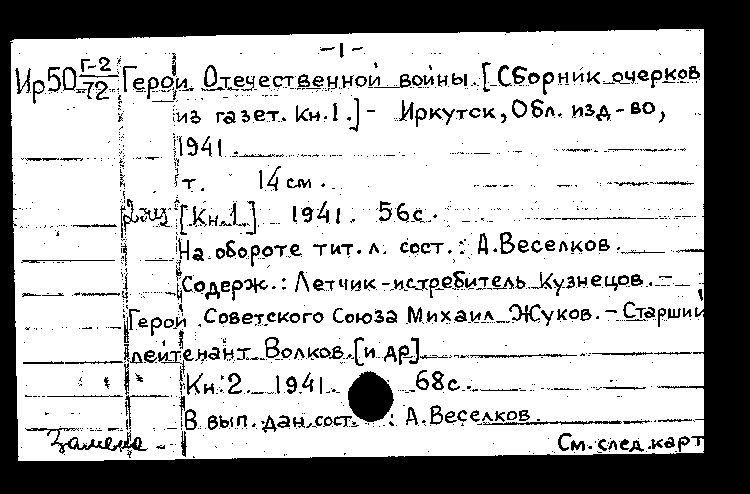 -1-
Ир50 Г-2/72 Герои Отечественной войны. [Сборник очерков
из газет. Кн.1.] - Иркутск, Обл. изд-во,
1941.
т. 14 см.
2 экз [Кн.1.] 1941. 56с.
На обороте тит. л. сост.: А.Веселков.
Содерж.: Летчик-истребитель Кузнецов. -
Герой Советского Союза Михаил Жуков. - Старший
лейтенант Волков. [и др].
Кн.2. 1941. 68с.
В вып. дан. сост. : А.Веселков.
Замена - См. след. карт